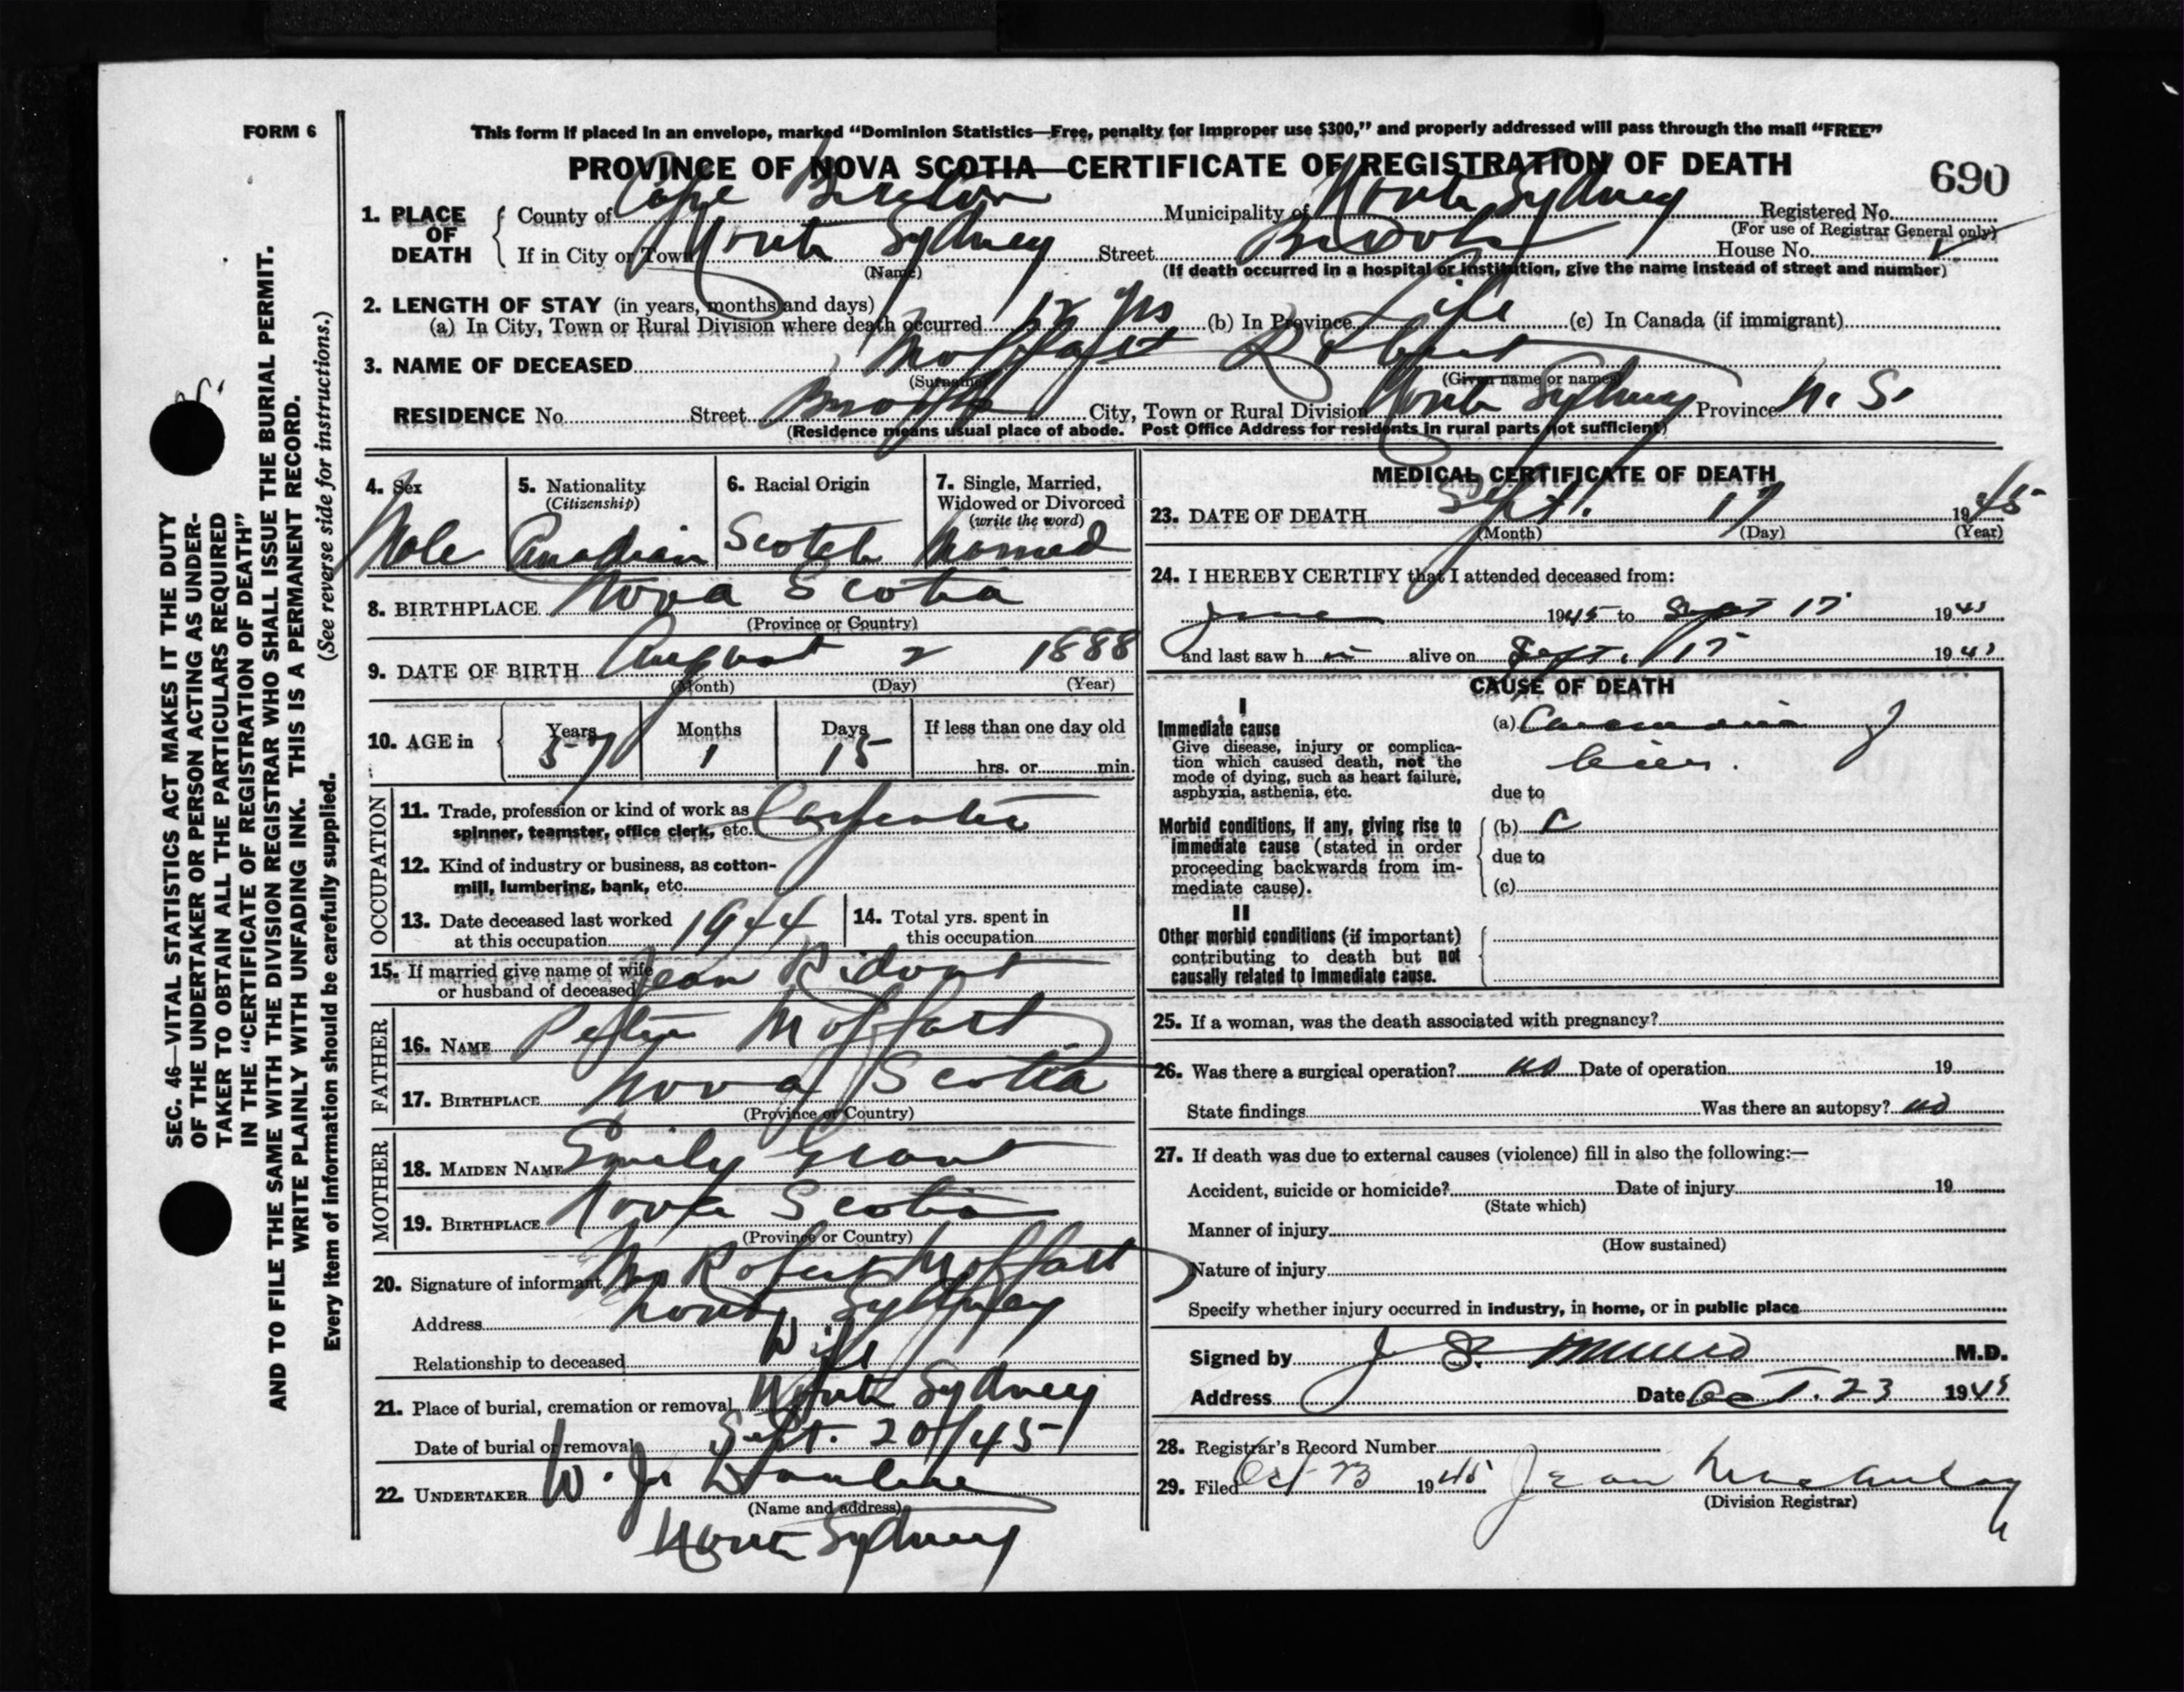 FORM 6
This form if placed in an envelope, marked “Dominion Statistics—Free, penalty for improper use $300,” and properly addressed will pass through the mail “FREE”
PROVINCE OF NOVA SCOTIA—CERTIFICATE OF REGISTRATION OF DEATH
690
1. PLACE OF DEATH { County of Cape Breton Municipality of North Sydney Registered No.
(For use of Registrar General only)
If in City or Town North Sydney Street House No.
(Name) (If death occurred in a hospital or institution, give the name instead of street and number)
2. LENGTH OF STAY (in years, months and days)
(a) In City, Town or Rural Division where death occurred 12 yrs (b) In Province Life (c) In Canada (if immigrant)
3. NAME OF DECEASED Moffatt Robert
(Surname) (Given name or names)
RESIDENCE No. Street City, Town or Rural Division North Sydney Province N. S.
(Residence means usual place of abode. Post Office Address for residents in rural parts not sufficient)
4. Sex
Male
5. Nationality
(Citizenship)
Canadian
6. Racial Origin
Scotch
7. Single, Married,
Widowed or Divorced
(write the word)
Married
8. BIRTHPLACE Nova Scotia
(Province or Country)
9. DATE OF BIRTH August 2 1888
(Month) (Day) (Year)
10. AGE in { Years Months Days If less than one day old
57 1 15 hrs. or min.
OCCUPATION
11. Trade, profession or kind of work as
spinner, teamster, office clerk, etc. Carpenter
12. Kind of industry or business, as cotton-
mill, lumbering, bank, etc.
13. Date deceased last worked
at this occupation 1944
14. Total yrs. spent in
this occupation
15. If married give name of wife
or husband of deceased Jean
FATHER
16. NAME Peter Moffatt
17. BIRTHPLACE Nova Scotia
(Province or Country)
MOTHER
18. MAIDEN NAME Emily Grant
19. BIRTHPLACE Nova Scotia
(Province or Country)
20. Signature of informant Mrs Robert Moffatt
Address North Sydney
Relationship to deceased Wife
21. Place of burial, cremation or removal North Sydney
Date of burial or removal Sept. 20/45
22. UNDERTAKER W. J.
(Name and address)
North Sydney
MEDICAL CERTIFICATE OF DEATH
23. DATE OF DEATH Sept. 17 1945
(Month) (Day) (Year)
24. I HEREBY CERTIFY that I attended deceased from:
June 1945 to Sept 17 1945
and last saw h im alive on Sept. 17 1945
CAUSE OF DEATH
I
Immediate cause
Give disease, injury or complica-
tion which caused death, not the
mode of dying, such as heart failure,
asphyxia, asthenia, etc.
(a) Carcinoma of
liver.
due to
Morbid conditions, if any, giving rise to
immediate cause (stated in order
proceeding backwards from im-
mediate cause).
(b)
due to
(c)
II
Other morbid conditions (if important)
contributing to death but not
causally related to immediate cause.
25. If a woman, was the death associated with pregnancy?
26. Was there a surgical operation? no Date of operation 19
State findings Was there an autopsy? no
27. If death was due to external causes (violence) fill in also the following:—
Accident, suicide or homicide? Date of injury 19
(State which)
Manner of injury
(How sustained)
Nature of injury
Specify whether injury occurred in industry, in home, or in public place
Signed by J. S. Munro M.D.
Address Date Oct. 23 1945
28. Registrar's Record Number
29. Filed Oct 23 1945 Jean MacAulay
(Division Registrar)
SEC. 46—VITAL STATISTICS ACT MAKES IT THE DUTY
OF THE UNDERTAKER OR PERSON ACTING AS UNDER-
TAKER TO OBTAIN ALL THE PARTICULARS REQUIRED
IN THE “CERTIFICATE OF REGISTRATION OF DEATH”
AND TO FILE THE SAME WITH THE DIVISION REGISTRAR WHO SHALL ISSUE THE BURIAL PERMIT.
WRITE PLAINLY WITH UNFADING INK. THIS IS A PERMANENT RECORD.
Every item of information should be carefully supplied. (See reverse side for instructions.)